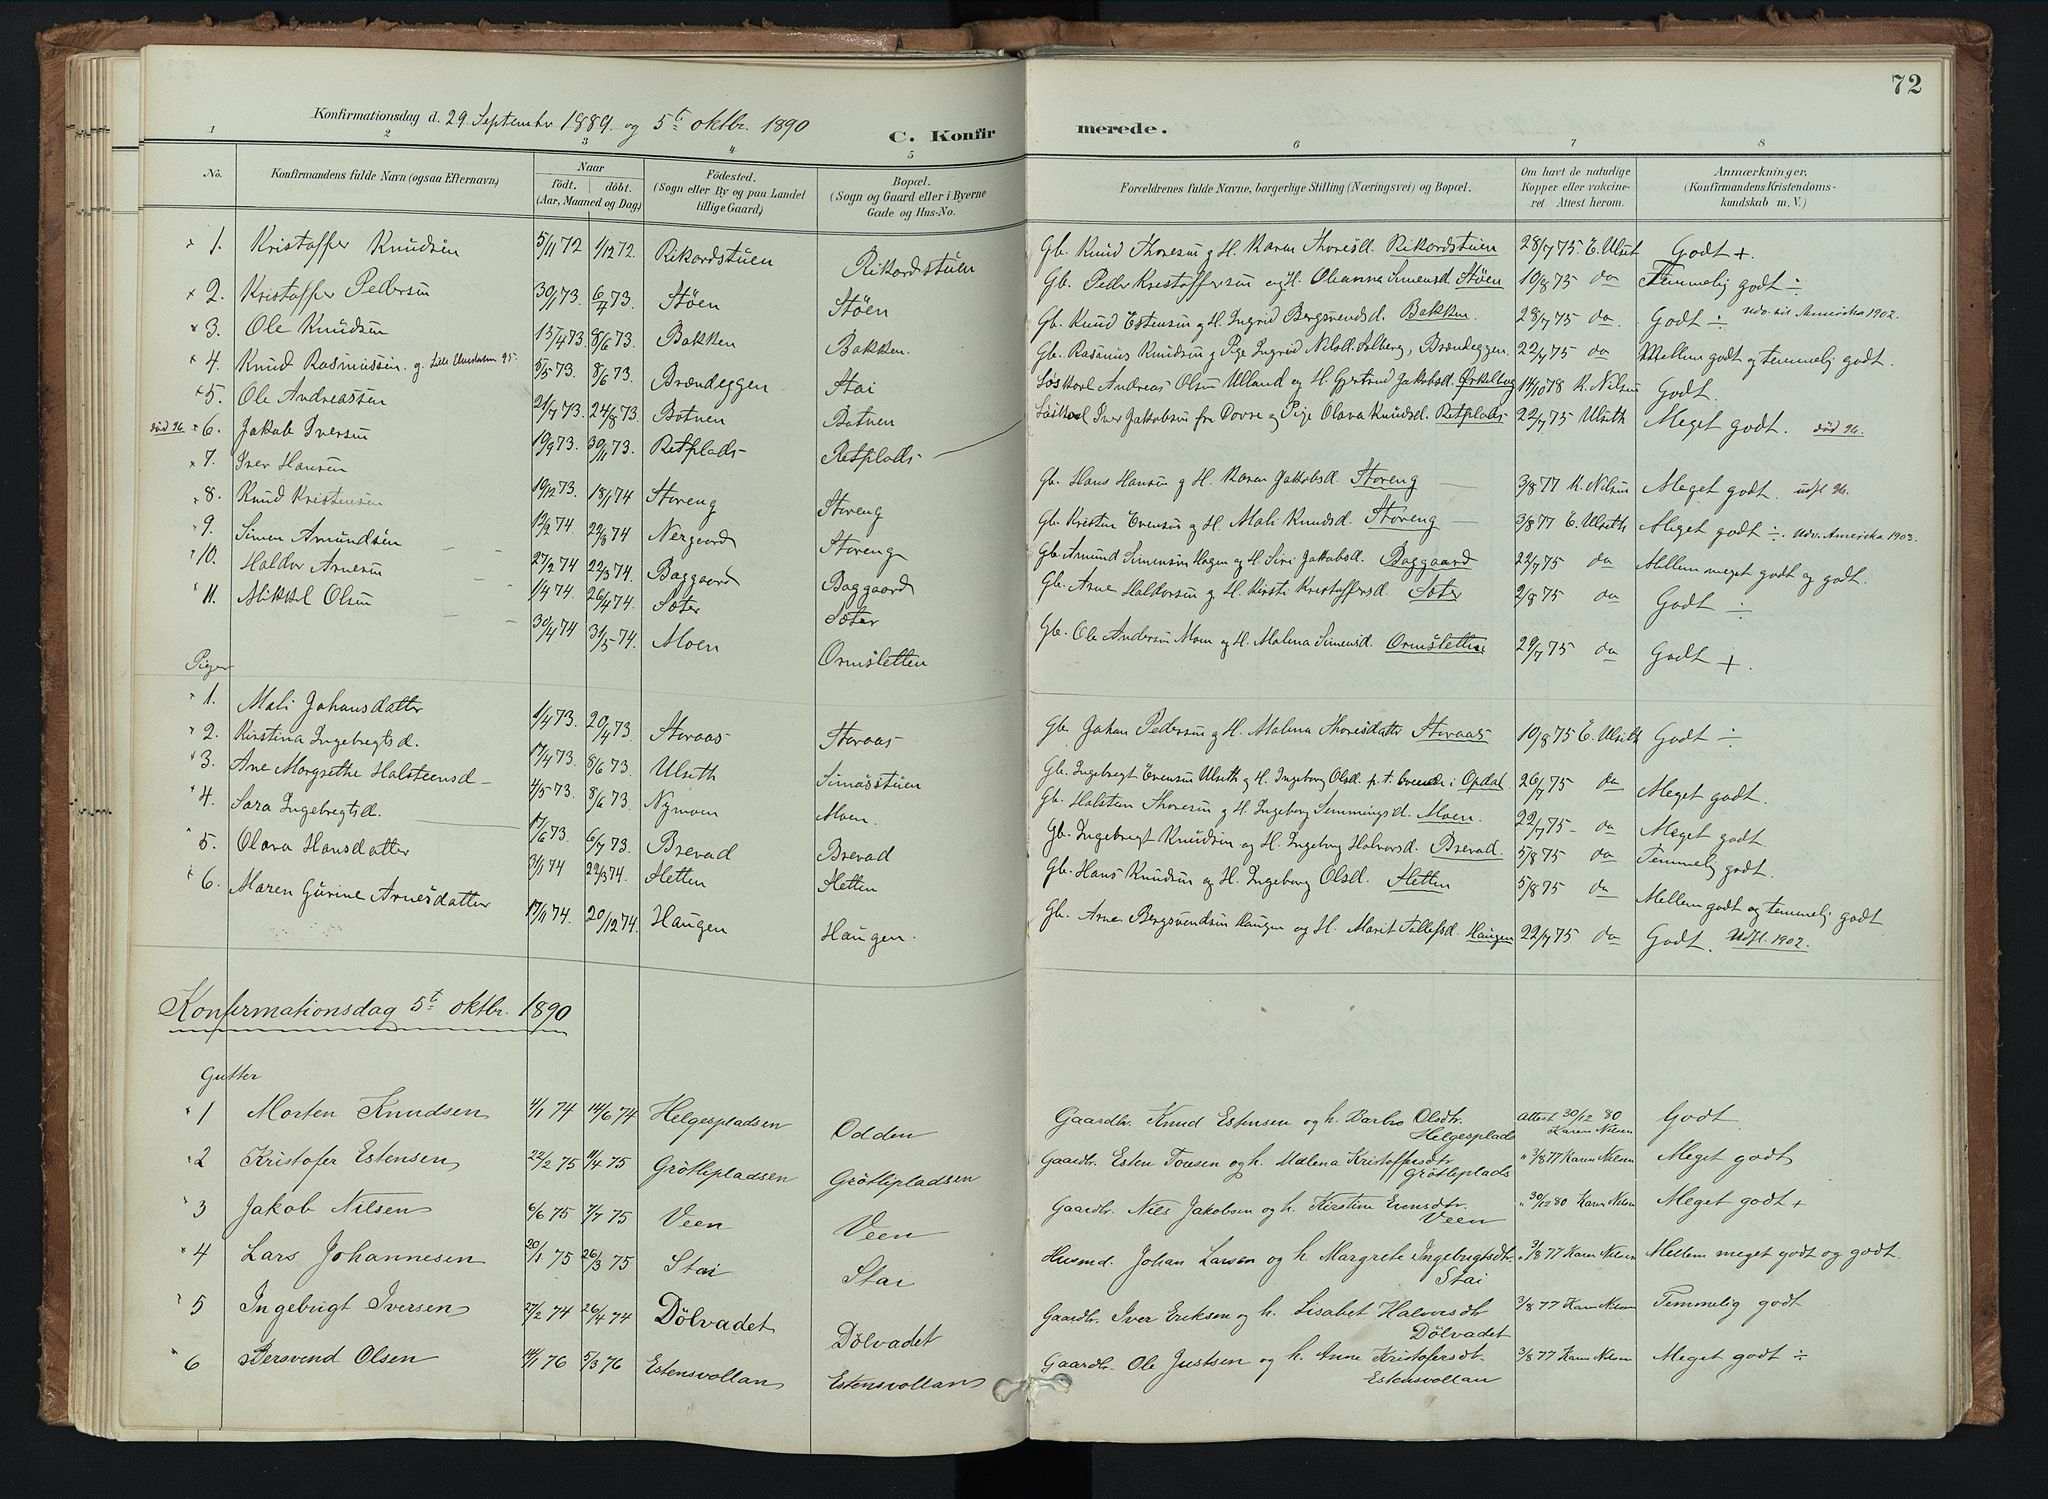 72
Konfirmationsdag d. 29 September 1889 og 5te oktbr. 1890
C. Konfirmerede.
1 2 3 4 5 6 7 8
No. Konfirmandens fulde Navn (ogsaa Efternavn) Naar födt. döbt. (Aar, Maaned og Dag) Födested. (Sogn eller By og paa Landet tillige Gaard) Bopæl. (Sogn og Gaard eller i Byerne Gade og Hus-No. Forældrenes fulde Navne, borgerlige Stilling (Næringsvei) og Bopæl. Om havt de naturlige Kopper eller vakcineret. Attest herom. Anmærkninger. (Konfirmandens Kristendomskundskab m. V.)
1. Kristoffer Knudsen 5/11 72 1/12 72. Rikardstuen Rikardstuen Gb. Knud Thoresen g H. Karen Thoresd. Rikardstuen 28/7 75 E. Ulset Godt +.
2. Kristoffer Pedersen 30/1 73. 6/4 73. Støen Støen Gb. Peder Kristoffersen og H. Oleanna Simensd. Støen 10/8 75 do Temmelig godt ÷
3. Ole Knudsen 13/4 73 8/6 73. Bakken Bakken. Gb. Knud Estensen og H. Ingrid Bergsvendsd. Bakken. 28/7 75 do. Godt ÷ udv. til Amerika 1902.
4. Knud Rasmussen g. 95. 5/5 73. 8/6 73. Brændeggen Stai Gb. Rasmus Knudsen g Pige Ingrid Nilsd. Solberg, Brændeggen 22/7 75 do Mellem godt og temmelig godt.
5. Ole Andreassen 21/7 73. 24/8 73. Botnen Botnen Løskarl Andreas Olsen Ulland og H. Gjertrud Jakobsd. 14/10 78 K. Nilsen Godt.
død 96. 6. Jakob Iversen 19/9 73. 30/11 73. Retplads Retplads Løskarl Iver Jakobsen fra Dovre og Pige Olava Knudsd. Retplads 22/7 75 Ulseth Meget godt. død 96.
7. Iver Hansen 19/12 73. 18/1 74 Storeng Storeng Gb. Hans Hansen g H. Karen Jakobsd. Storeng 3/8 77 K. Nilsen Meget godt. udfl 96.
8. Knud Kristensen 12/2 74. 22/3 74 Nergaard Storeng Gb. Kristen Evensen og H. Mali Knudsd. Storeng 3/8 77 E. Ulseth Meget godt ÷. Udv. Amerika 1903.
9. Simen Amundsen 27/2 74 22/3 74. Baggaard Baggaard Gb. Amund Simensen Hagen og H. Siri Jakobsd. Baggaard 22/7 75 do Mellem meget godt og godt.
10. Haldor Arnesen 1/4 74. 26/4 74. Sæter Sæter Gb. Arne Haldorsen g H. Kirsti Kristoffersd. Sæter 2/8 75 do Godt ÷
11. Mikkel Olsen 30/4 74 31/5 74. Moen Ormsletten Gb. Ole Andersen Moen og H. Malena Simensd. Ormsletten 29/7 75 do Godt +.
Piger
1. Mali Johansdatter 1/4 73. 20/4 73. Storaas Storaas Gb. Johan Pedersen g H. Malena Thoresdatter Storaas 10/8 75 E. Ulseth Godt ÷
2. Kirstina Ingebregtsd. 17/4 73. 8/6 73. Ulseth Simasstuen Gb. Ingebregt Evensen Ulseth og H. Ingeborg Olsd. p.t. i Opdal 26/7 75 do Meget godt.
3. Ane Margrethe Halsteensd 4/5 73. 8/6 73. Nymoen Moen. Gb. Halsten Thoresen g H. Ingeborg Semmingsd. Moen. 22/7 75 do Meget godt.
4. Sara Ingebregtsd. 17/6 73. 6/7 73. Brevad Brevad Gb. Ingebregt Knudsen og H. Ingeborg Halvorsd. Brevad. 5/8 75 do Temmelig godt.
5. Olava Hansdatter 31/1 74 22/3 74. Sletten Sletten Gb. Hans Knudsen og H. Ingeborg Olsd. Sletten 5/8 75 do Mellem godt og temmelig godt
6. Maren Gurine Arnesdatter 17/11 74. 20/12 74. Haugen Haugen. Gb. Arne Bergsvendsen Haugen og H. Marit Tollefsd. Haugen 22/7 75 do Godt. Udfl. 1902.
Konfirmationsdag 5te oktbr. 1890
Gutter
1 Morten Knudsen 4/1 74 14/6 74 Helgespladsen Odden Gaardbr. Knud Estensen og h. Barbro Olsdtr. Helgesplads attest 30/12 80 Karen Nilsen Godt.
2 Kristofer Estensen 22/2 75 11/4 75 Grötlipladsen Grötlipladsen Gaardbr. Esten Toresen og h. Malena Kristoffersdtr Grötliplads " 3/8 77 Karen Nilsen Meget godt
3 Jakob Nilsen 6/6 75 7/7 75 Veen Veen Gaardbr. Nils Jakobsen og h. Kirstine Evensdtr. Veen " 30/12 80 Karen Nilsen Meget godt +
4 Lars Johannesen 20/1 75 26/3 75 Stai Stai Husmd. Johan Larsen og h. Margrete Ingebrigtsdtr. Stai " 3/8 77 Karen Nilsen Mellem meget godt og godt.
5 Ingebrigt Iversen 27/2 74 26/4 74 Dölvadet Dölvadet Gaardbr. Iver Eriksen og h. Lisabet Halvorsdtr Dölvadet 3/8 77 Karen Nilsen Temmelig godt
6 Bersvend Olsen 14/1 76 5/3 76 Estensvollan Estensvollan Gaardbr. Ole Justsen og h. Anne Kristofersdt. Estensvollan 3/8 77 Karen Nilsen Meget godt ÷